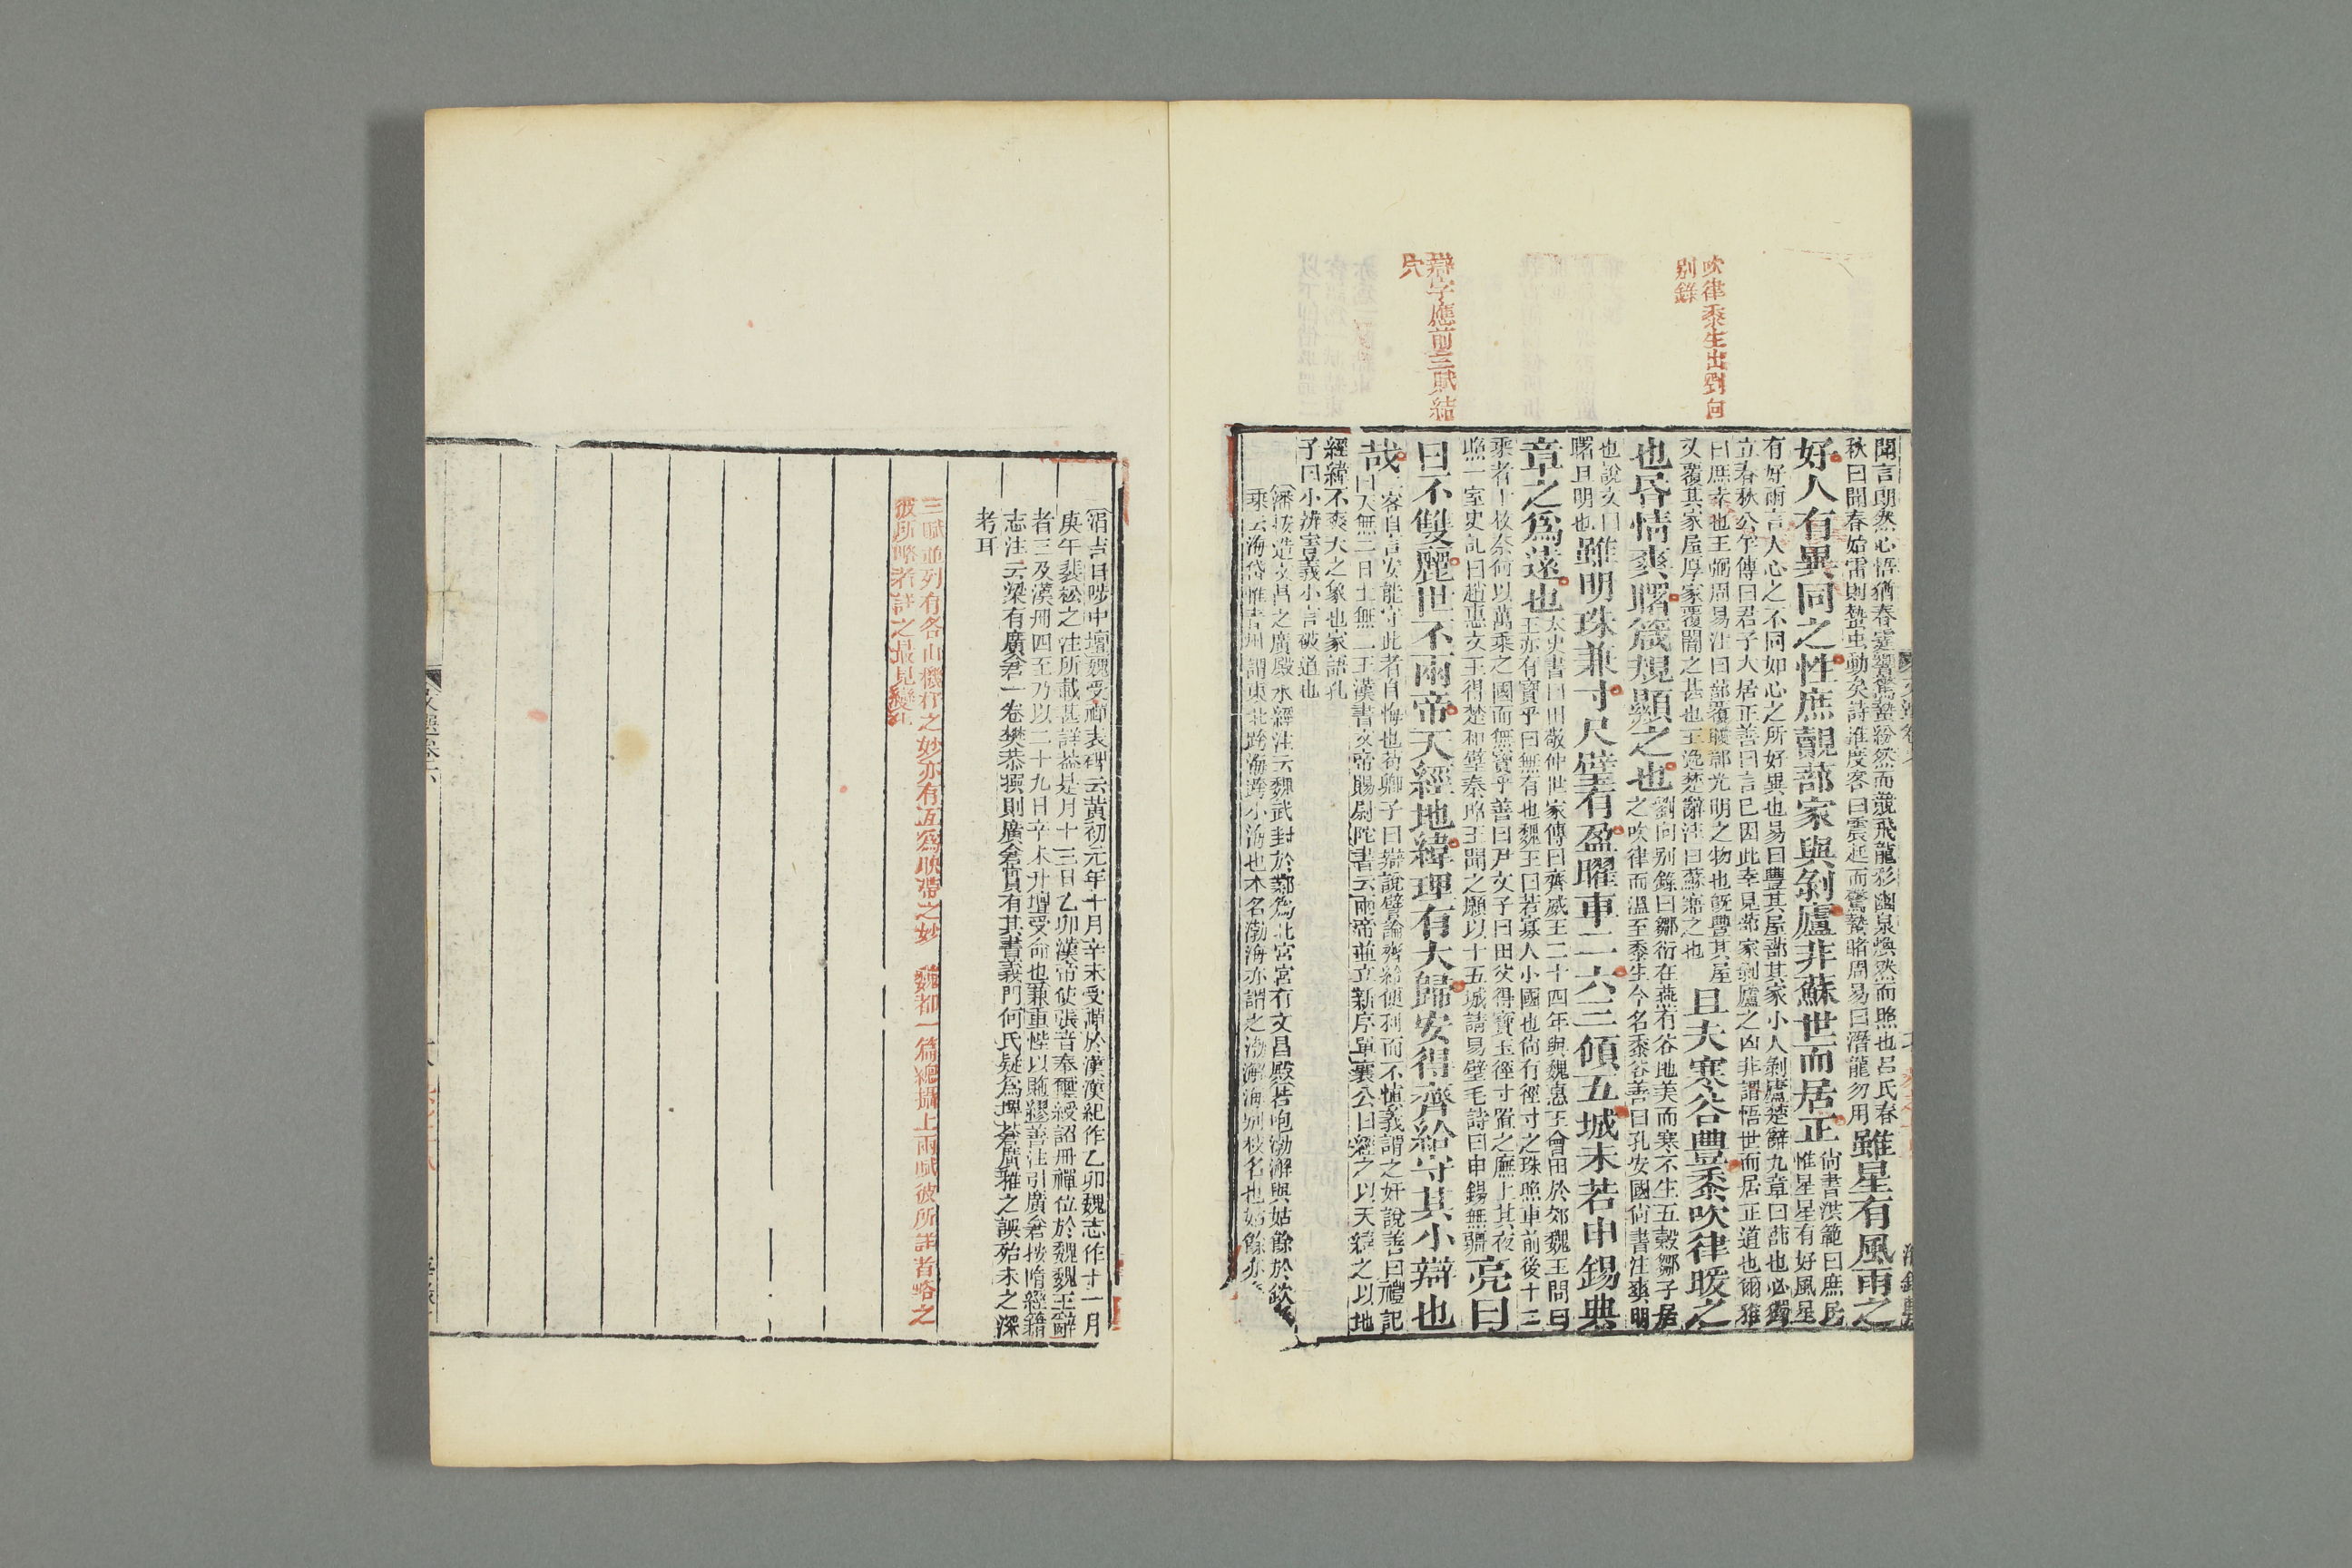 吹律黍生出劉向
别錄
辯字應前三賦結
穴
聞言朗然心悟猶春霆響驚蟄紛然而競飛龍彩幽泉煥然而照也呂氏春
秋曰開春始雷則蟄虫動矣詩推度客曰震起而驚蟄睹周易曰潛龍勿用
雖星有風雨之
好人有異同之性庶覿蔀家與剝廬非蘇世而居正
尚書洪範曰庶民
惟星星有好風星
有好雨言人心之不同如心之所好異也易曰豐其屋蔀其家小人剝廬楚辭九章曰蘇也必獨
立春秋公羊傳曰君子大居正善曰言已因此幸見蔀家剝廬之凶非謂悟世而居正道也爾雅
曰庶幸也王弼周易注曰蔀覆曖鄣光明之物也旣豐其屋
又覆其家屋厚家覆闇之甚也王逸楚辭注曰蘇寤之也
且夫寒谷豐黍吹律暖之
也昏情爽曙箴規顯之也
劉向别錄曰鄒衍在燕有谷地美而寒不生五穀鄒子居
之吹律而溫至黍生今名黍谷善曰孔安國尚書注爽明
也說文曰
曙旦明也
雖明珠兼寸尺璧有盈曜車二六三傾五城未若申錫典
章之爲遠也
太史書曰田敬仲世家傳曰齊威王二十四年與魏惠王會田於郊魏王問曰
王亦有寶乎曰無有也魏王曰若寡人小國也尚有徑寸之珠照車前後十三
乘者十枚奈何以萬乘之國而無寶乎善曰尹文子曰田父得寶玉徑寸置之廡上其夜
照一室史記曰趙惠文王得楚和璧秦昭王聞之願以十五城請易璧毛詩曰申錫無疆
亮曰
日不雙麗世不兩帝天經地緯理有大歸安得齊給守其小辯也
哉
客自言安能守此者自悔也荀卿子曰辯說譬論齊給便利而不愼義謂之奸說善曰禮記
曰天無二日土無二王漢書文帝賜尉陀書云兩帝並立新序單襄公曰經之以天緯之以地
經緯不爽天之象也家語孔
子曰小辨害義小言破道也
乘云海岱惟青州謂東北跨海跨小海也本名渤海亦謂之渤澥海别枝名也姑餘亦
渭吉日陟中壇魏受禪表碑云黃初元年十月辛未受禪於漢漢紀作乙卯魏志作十一月
庚午裴松之注所載甚詳蓋是月十三日乙卯漢帝使張音奉璽綬詔冊禪位於魏魏王辭
者三及漢冊四至乃以二十九日辛未升壇受命也兼重悂以䝯繆善注引廣倉按隋經籍
志注云梁有廣倉一卷樊恭撰則廣倉實有其書義門何氏疑爲埤蒼廣雅之誤殆未之深
考耳
三賦並列有各出機杼之妙亦有互爲映帶之妙 魏都一篇總攝上兩賦彼所詳者略之
彼所略者詳之最見變化
文選卷六